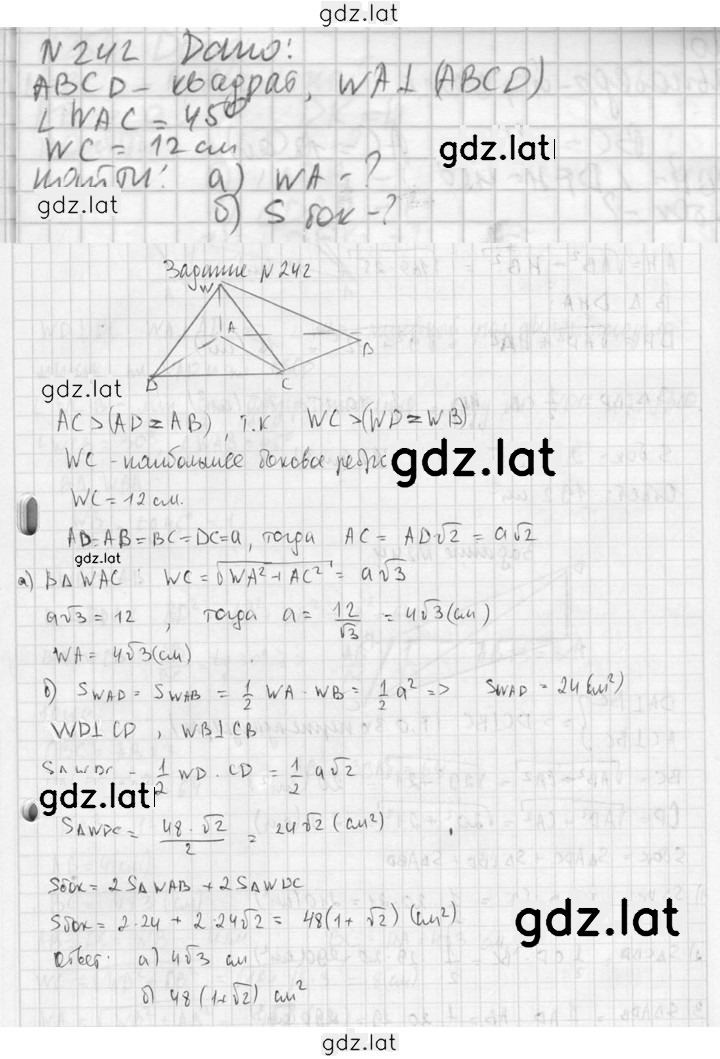 gdz.lat
N 242 Дано:
ABCD – квадрат, WA⊥(ABCD)
∠WAC = 45°
WC = 12 см
gdz.lat
Найти: а) WA - ?
gdz.lat
б) S бок - ?
Задание N 242
W
A
B
D
C
gdz.lat
AC > (AD = AB), т.к WC > (WD = WB)
WC - наибольшее боковое ребро
gdz.lat
WC = 12 см.
AD=AB=BC=DC=a, тогда AC = AD√2 = a√2
gdz.lat
а) В△WAC: WC = √WA²+AC² = a√3
a√3 = 12, тогда a = 12/√3 = 4√3 (см)
WA = 4√3 (см)
б) S WAD = S WAB = 1/2 WA · WB = 1/2 a² => S WAD = 24 (см²)
WD⊥CD, WB⊥CB
S△WDC = 1/2 WD · CD = 1/2 a√2
gdz.lat
S△WDC = 48·√2/2 = 24√2 (см²)
Sбок = 2S△WAB + 2S△WDC
Sбок = 2·24 + 2·24√2 = 48(1+√2) (см²)
gdz.lat
Ответ: а) 4√3 см
б) 48(1+√2) см²
gdz.lat